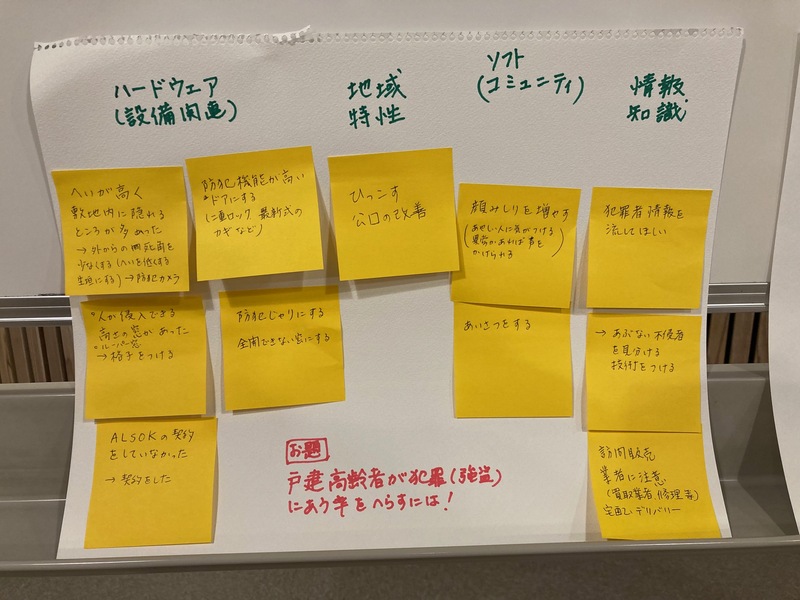 ハードウェア
(設備関連)
地域
特性
ソフト
(コミュニティ)
情報
知識
へいが高く
敷地内に隠れる
ところが多あった
→外からの死角を
少なくする(へいを低くする
生垣にする)→防犯カメラ
防犯機能が高い
ドアにする
(二重ロック 最新式の
カギなど)
ひっこす
人口の改善
顔みしりを増やす
(あやしい人に気がつける
異常があれば声を
かけられる)
犯罪者情報を
流してほしい
人が侵入できる
高さの窓があった
ルーバー窓
→格子をつける
防犯じゃりにする
全開できない窓にする
あいさつをする
→あぶない不侵者
を見分ける
技術をつける
ALSOKの契約
をしていなかった
→契約をした
訪問販売
業者に注意
(買取業者、修理 等)
宅配、デリバリー
お題
戸建高齢者が犯罪(強盗)
にあう率をへらすには!